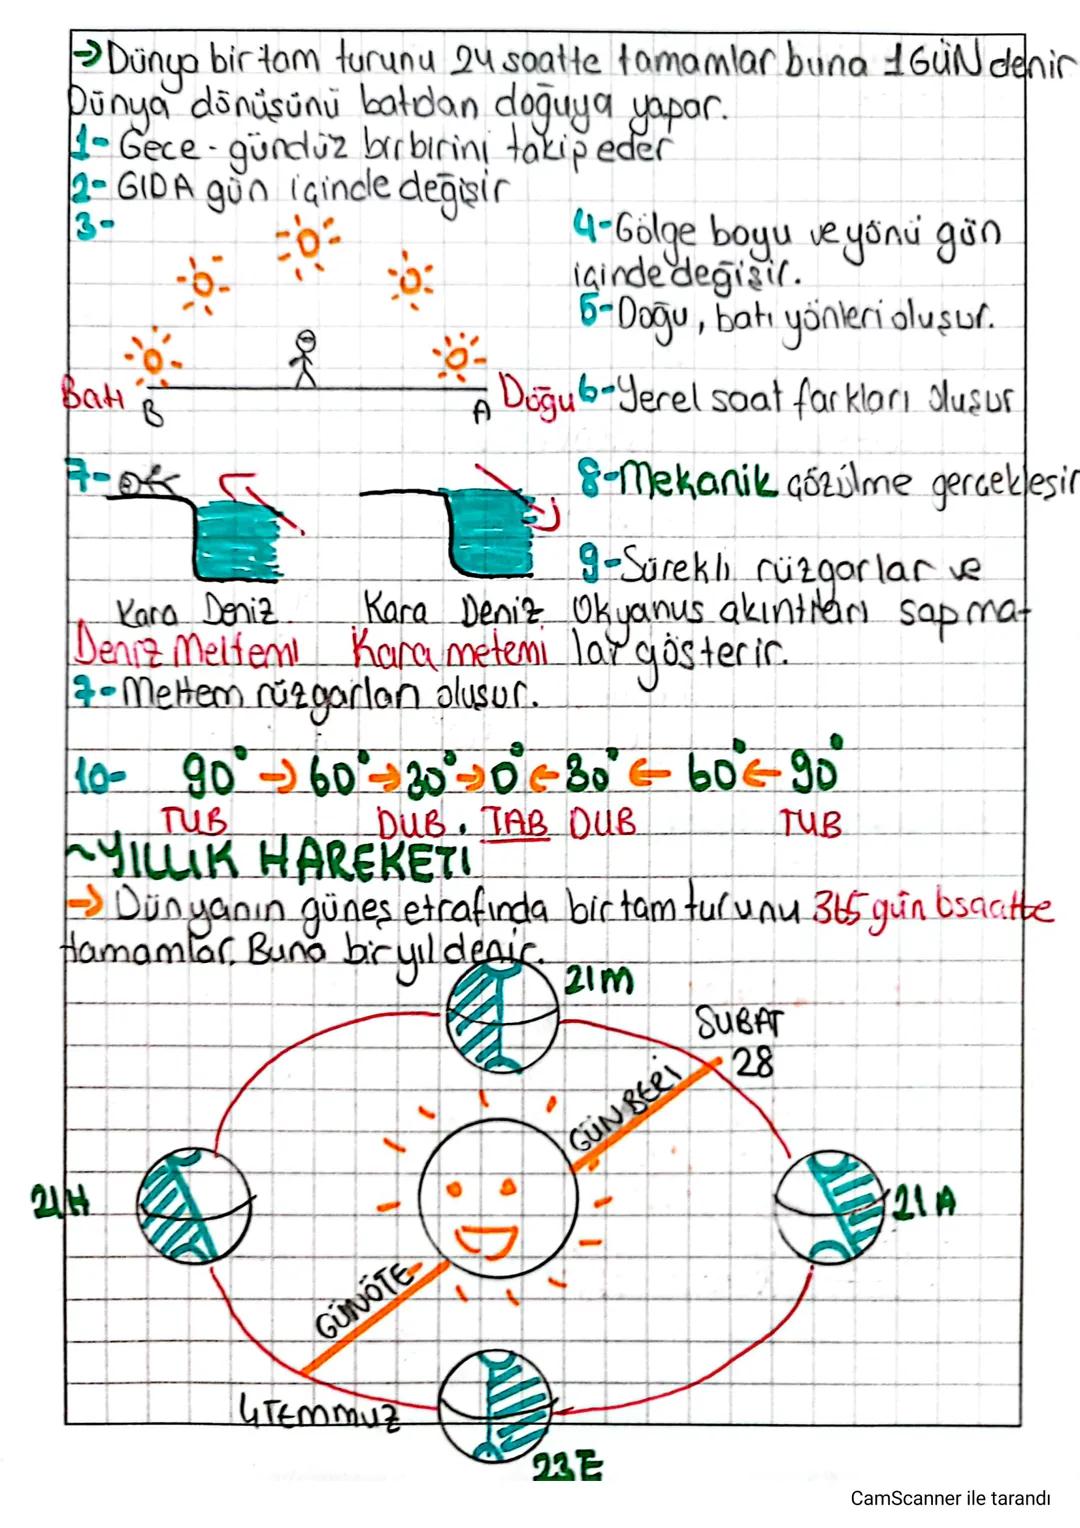 →Dünya bir tam turunu 24 saatte tamamlar buna 1 GÜN denir
Dünya dönüşünü batıdan doğuya yapar.
1- Gece - gündüz birbirini takip eder
2- GIDA gün içinde değişir
3-
Batı B A Doğu
4-Gölge boyu ve yönü gün
içinde değişir.
5-Doğu, batı yönleri oluşur.
6-Yerel saat farkları oluşur
7-
Kara Deniz Kara Deniz
Deniz Meltemi Kara metemi
7-Meltem rüzgarları oluşur.
8-Mekanik çözülme gerçekleşir
9-Sürekli rüzgarlar ve
Okyanus akıntıları sapma-
lar gösterir.
10- 90° → 60° → 30° → 0° ← 30° ← 60° ← 90°
TUB DUB. TAB DUB TUB
~YILLIK HAREKETI
→ Dünyanın güneş etrafında bir tam turunu 365 gün 6saatte
tamamlar. Buna bir yıl denir.
21M
ŞUBAT
28
GÜN BERİ
21H
21A
GÜNÖTE
4TEMMUZ
23E
CamScanner ile tarandı